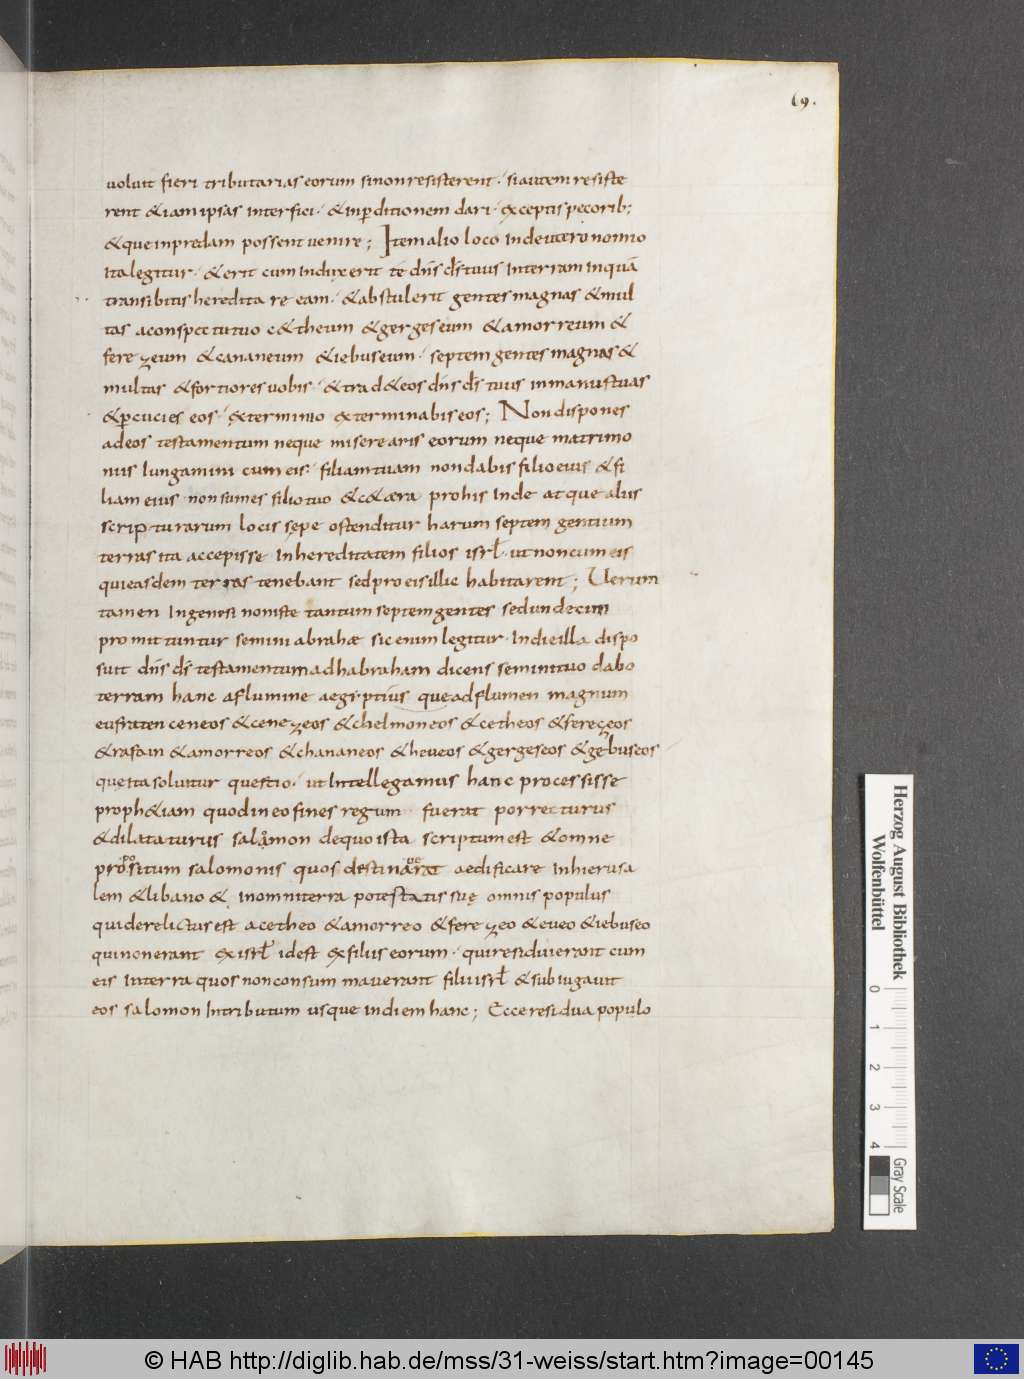 69.
uoluit fieri tributarias eorum si non resisterent· si autem resiste
rent &iam ipsas interfici· & inp̄ditionem dari· exceptis pecorib;
& que inpredam possent uenire; Item alio loco in deuteronomio
ita legitur· & erit cum induxerit te dn̄s ds̄ tuus in terram in quā
transibitis heredita re eam· & abstulerit gentes magnas & mul
tas a conspectu tuo c&theum & gergeseum & amorreum &
ferezeum & cananeum & iebuseum· septem gentes magnas &
multas & fortiores uobis· & trad& eos dn̄s ds̄ tuus in manus tuas
& p̄cucies eos· exterminio exterminabis eos; Non dispones
ad eos testamentum neque miserearis eorum neque matrimo
niis iungamini cum eis: filiam tuam non dabis filio eius & fi
liam eius non sumes filio tuo & c&aera pro his inde atque aliis
scripturarum locis sępe ostenditur harum septem gentium
terras ita accepisse in hereditatem filios isrl̄ · ut non cum eis
qui easdem terras tenebant sed pro eis illic habitarent; Uerum
tamen in genesi non iste tantum septem gentes sed undecim
promittuntur semini abrahæ sic enim legitur· In die illa dispo
suit dn̄s ds̄ testamentum ad habraham dicens semini tuo dabo
terram hanc a flumine aegiptius que ad flumen magnum
eufraten ceneos & cenezeos & chelmoneos & cetheos & ferezeos
& rafain & amorreos & chananeos & heueos & gergeseos & gebuseos
que ita soluitur questio· ut intellegamus hanc processisse
proph&iam quod in eo fines regum fuerat porrecturus
& dilataturus salamon de quo ista scriptum est & omne
propositum salomonis quos destinauerat aedificare in hierusa
lem & libano & in omni terra potestatis suę omnis populus
qui derelictus est a cetheo & amorreo & ferezeo & eueo & iebuseo
qui non erant ex isrl̄ id est ex filiis eorum· qui residui erant cum
eis in terra quos non consummauerant filii isrl̄ & subiugauit
eos salomon in tributum usque in diem hanc; Ecce residua populo
Herzog August Bibliothek
Wolfenbüttel
0 1 2 3 4
Gray Scale
© HAB http://diglib.hab.de/mss/31-weiss/start.htm?image=00145